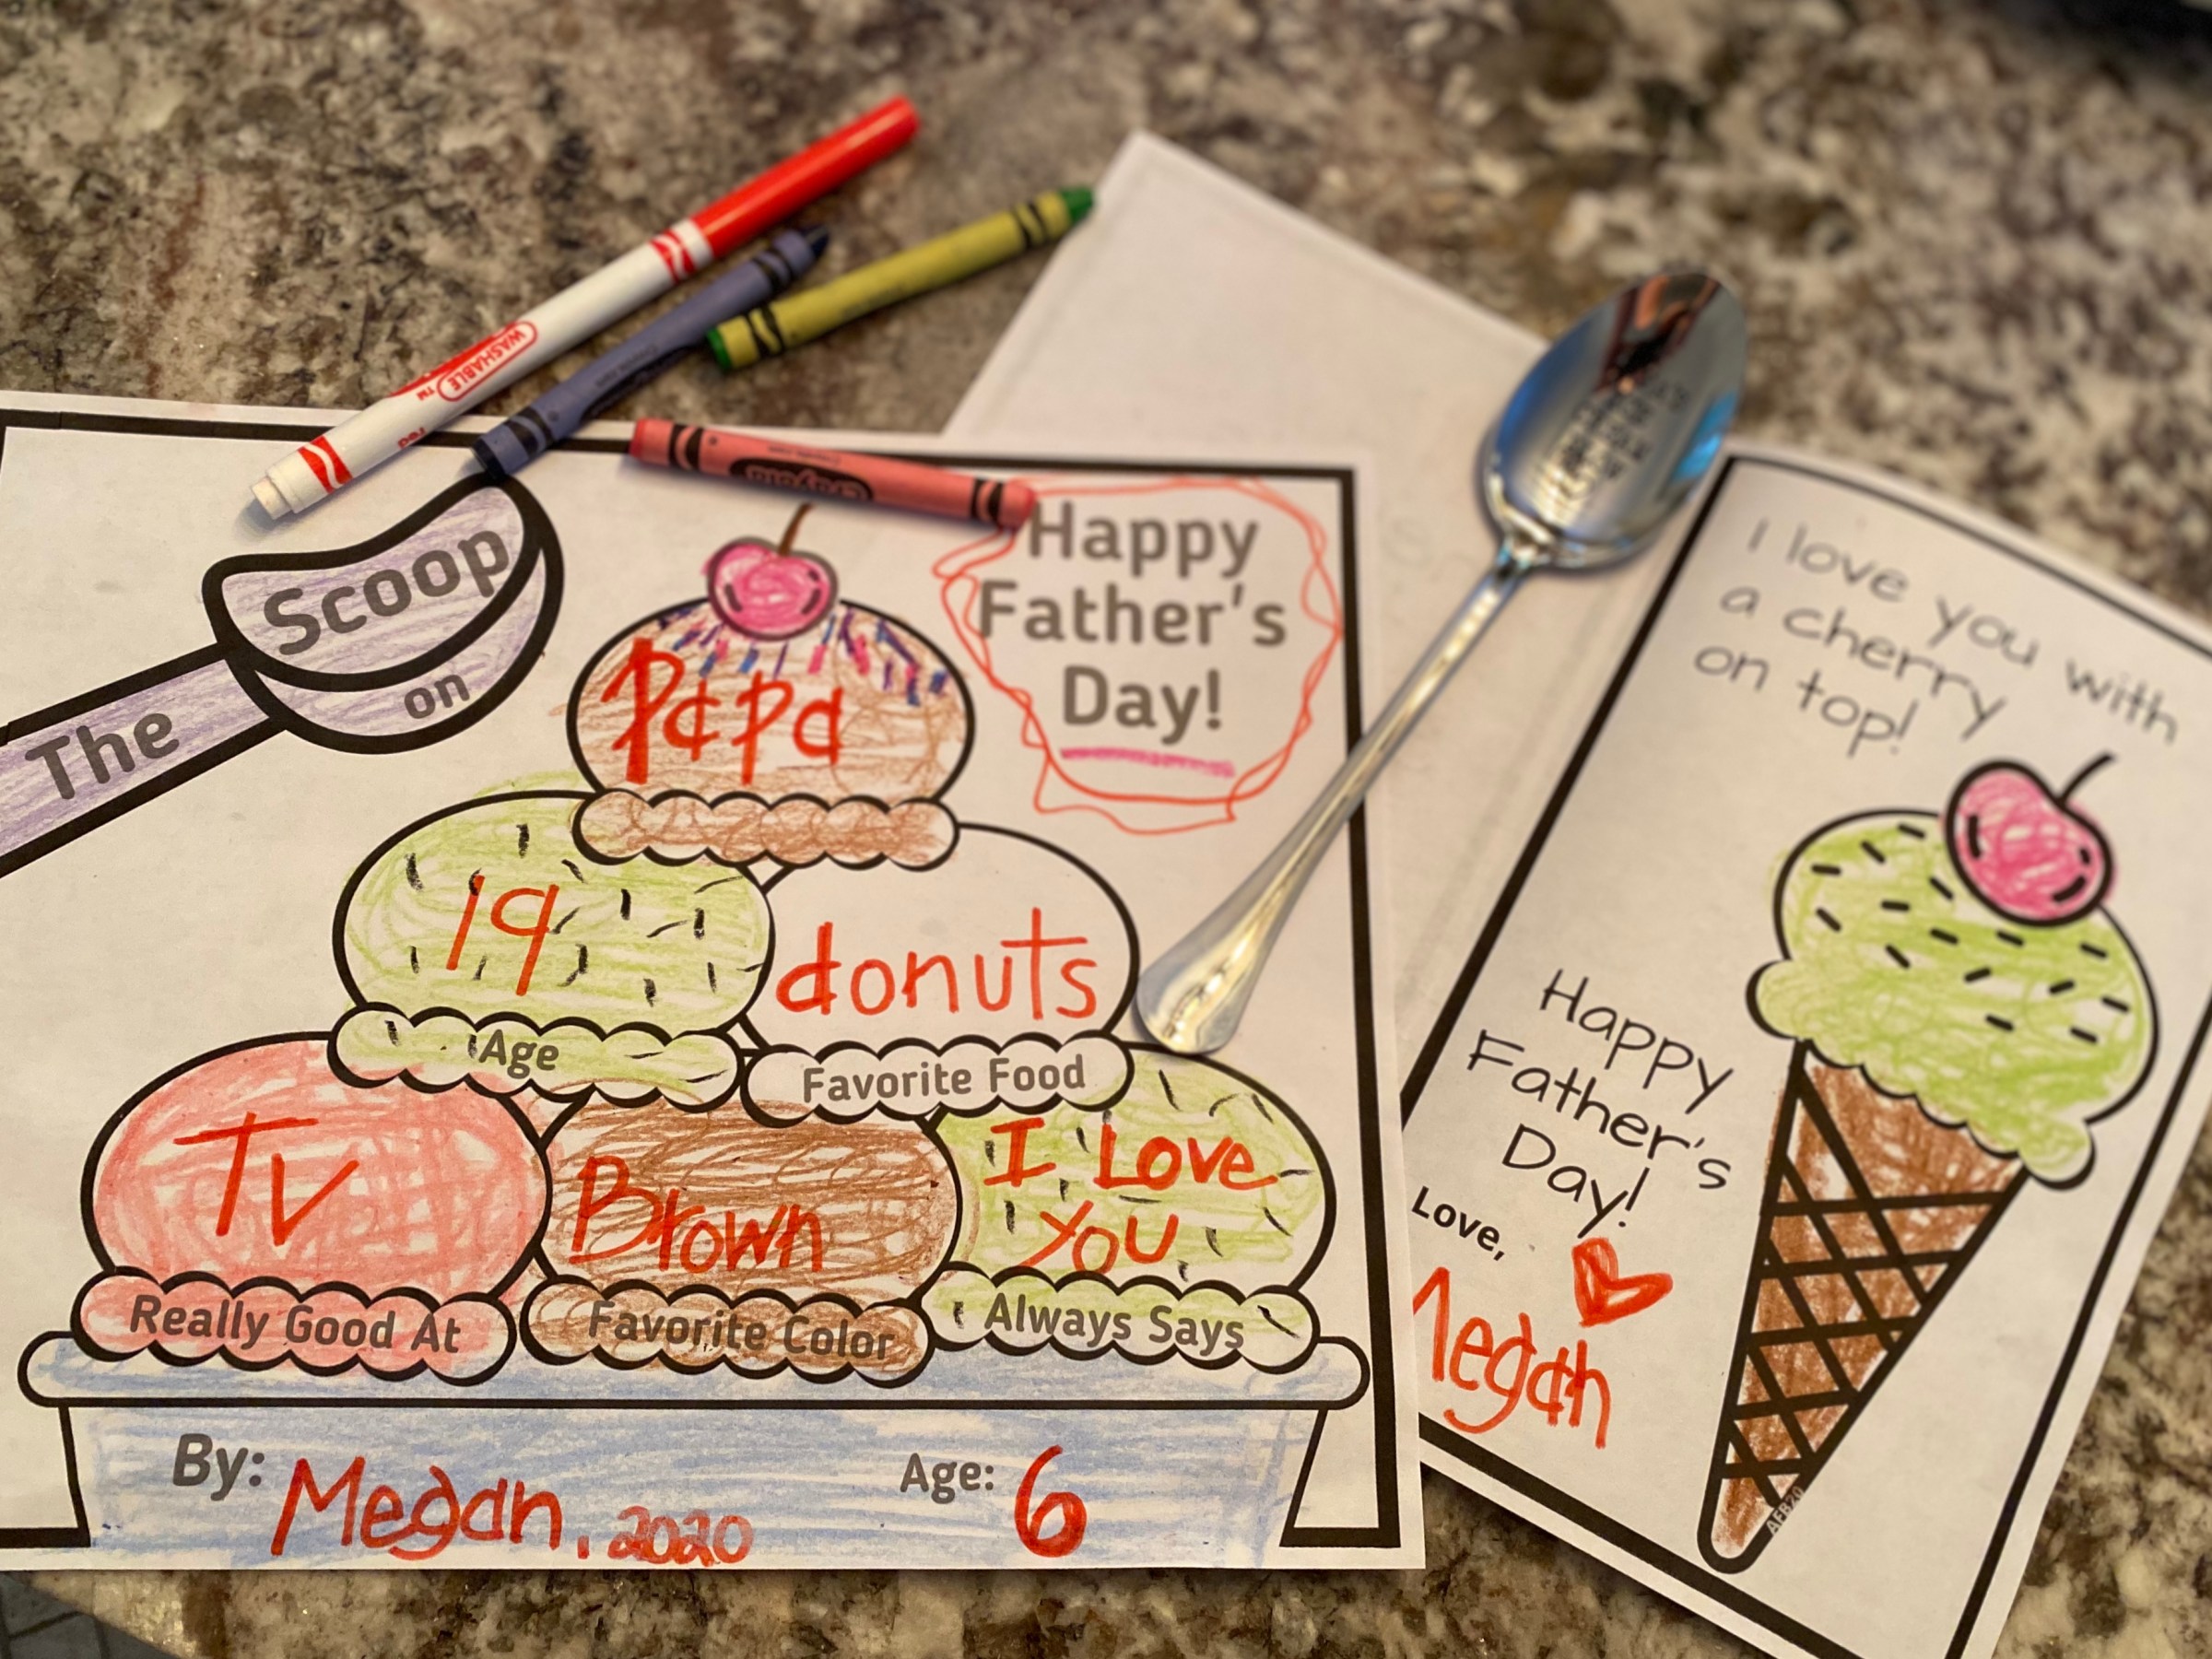 WASHABLE
TM
red
Crayola
The
Scoop
on
Papa
Happy
Father's
Day!
19
Age
donuts
Favorite Food
TV
Really Good At
Brown
Favorite Color
I Love
You
Always Says
By: Megan, 2020
Age: 6
I love you with
a cherry
on top!
Happy
Father's
Day!
Love,
Megan
AFB20